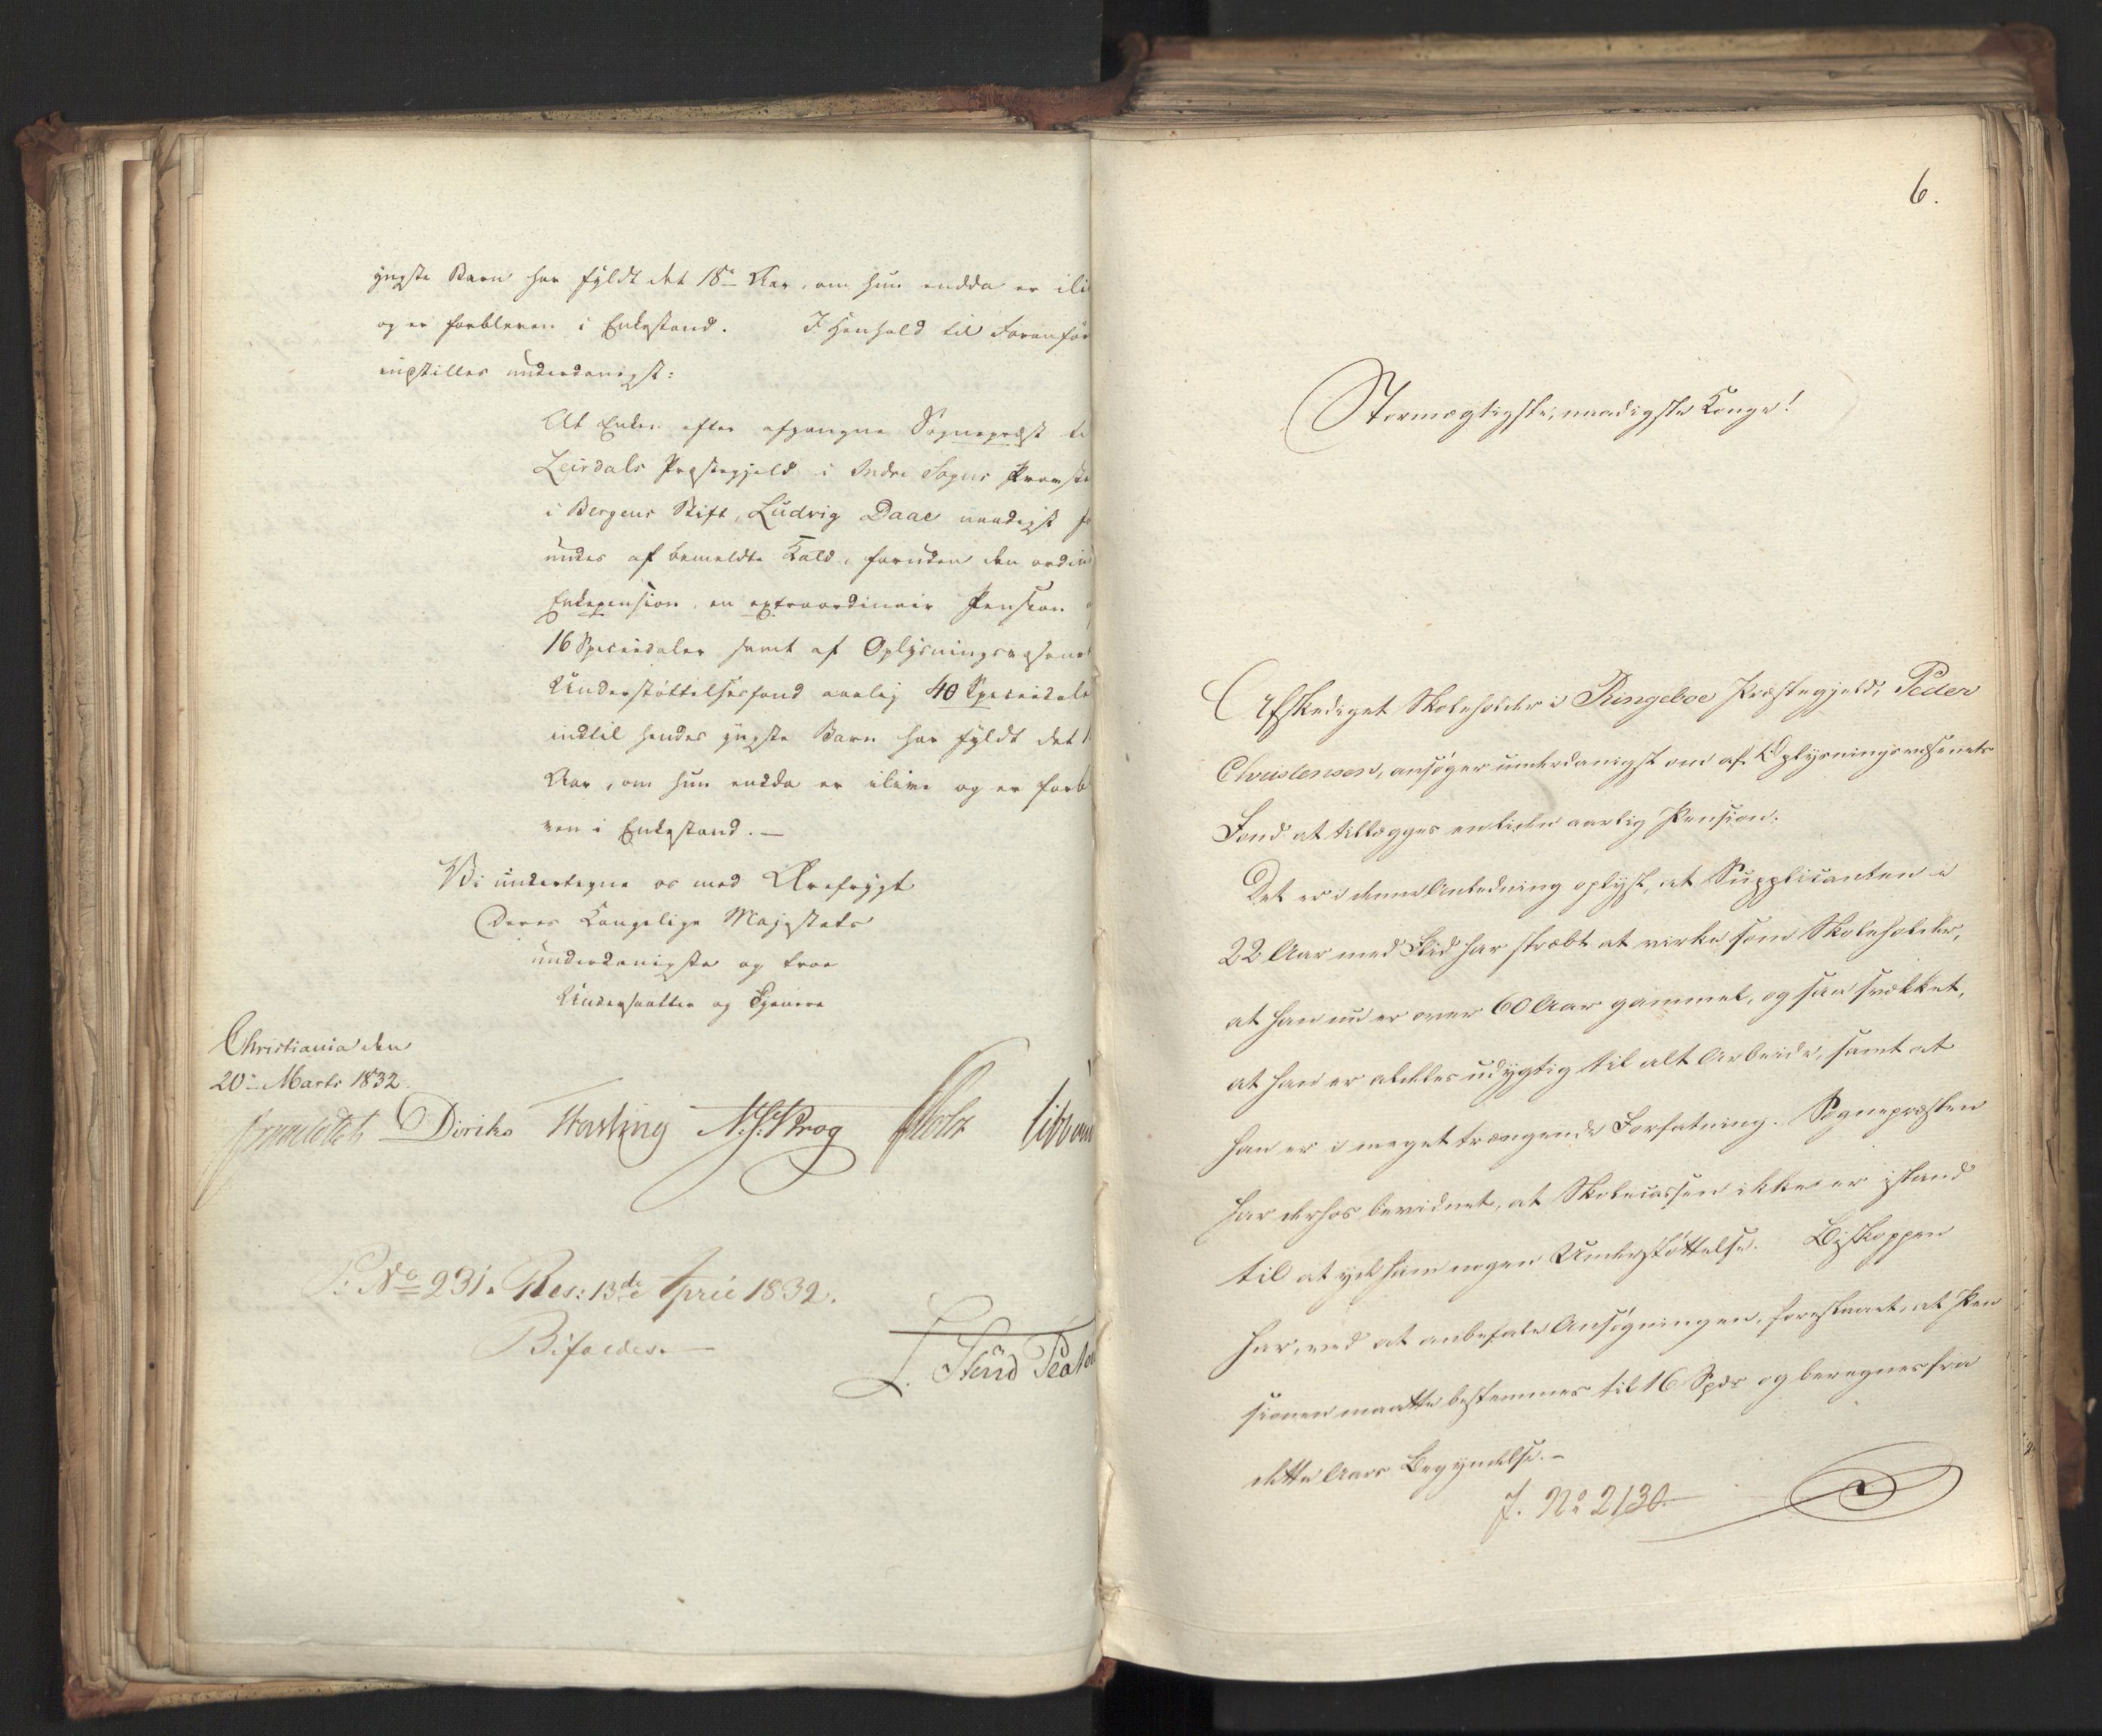 yngste Barn har fyldt det 18de Aar, om hun endda er ili
og er forbleven i Enkestand. I Henhold til Foranfør
indstilles underdanigst:
At Enken efter afgangne Sognepræst ti
Leirdals Præstegjeld i Indre Sogns Provstie
i Bergens Stift, Ludvig Daae naadigst
undes af bemeldte Kald, foruden den ordin
Enkepension, en extraordinair Pension
16 Speciedaler samt af Oplysningsvæsenet
Understøttelsesfond aarlig 40 Speciedale
indtil hendes yngste Barn har fyldt det 1
Aar, om hun endda er ilive og er forb
ven i Enkestand. —
Vi undertegne os med Ærefrygt
Deres Kongelige Majestæts
underdanigste og troe
Undersaatter og Tjenere
Christiania den
20de Marts 1832.
Diriks N. J. Krog Holst
P: No 231. Res: 13de April 1832.
Bifaldes. —
6.
Stormægtigste, naadigste Konge!
Afskediget Skoleholder i Ringeboe Præstegjeld, Peder
Christensen, ansøger underdanigst om af Oplysningsvæsenets
Fond at tillægges en liden aarlig Pension.
Det er i denne Anledning oplyst, at Supplicanten i
22 Aar med Flid har stræbt at virke som Skoleholder,
at han nu er over 60 Aar gammel, og saa svækket,
at han er aldeles udygtig til alt Arbeide, samt at
han er i meget trængende Forfatning. Sognepræsten
har derhos bevidnet, at Skolecassen ikke er istand
til at yde ham nogen Understøttelse. Biskoppen
har, ved at anbefale Ansøgningen, foreslaaet, at Pen
sionen maatte bestemmes til 16 Spdr og beregnes fra
dette Aars Begyndelse. —
J. No 2130. —